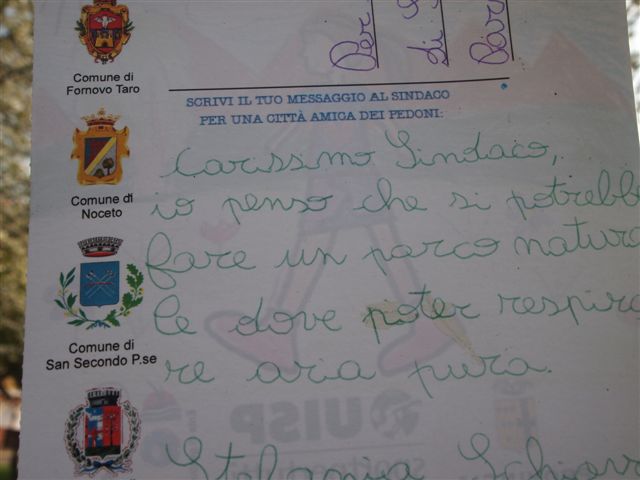 Per
di
Par
Comune di
Fornovo Taro
SCRIVI IL TUO MESSAGGIO AL SINDACO
PER UNA CITTÀ AMICA DEI PEDONI:
Comune di
Noceto
Comune di
San Secondo P.se
Carissimo Sindaco,
io penso che si potrebb
fare un parco natura
le dove poter respira
re aria pura.
UISP
Stefania Schiav